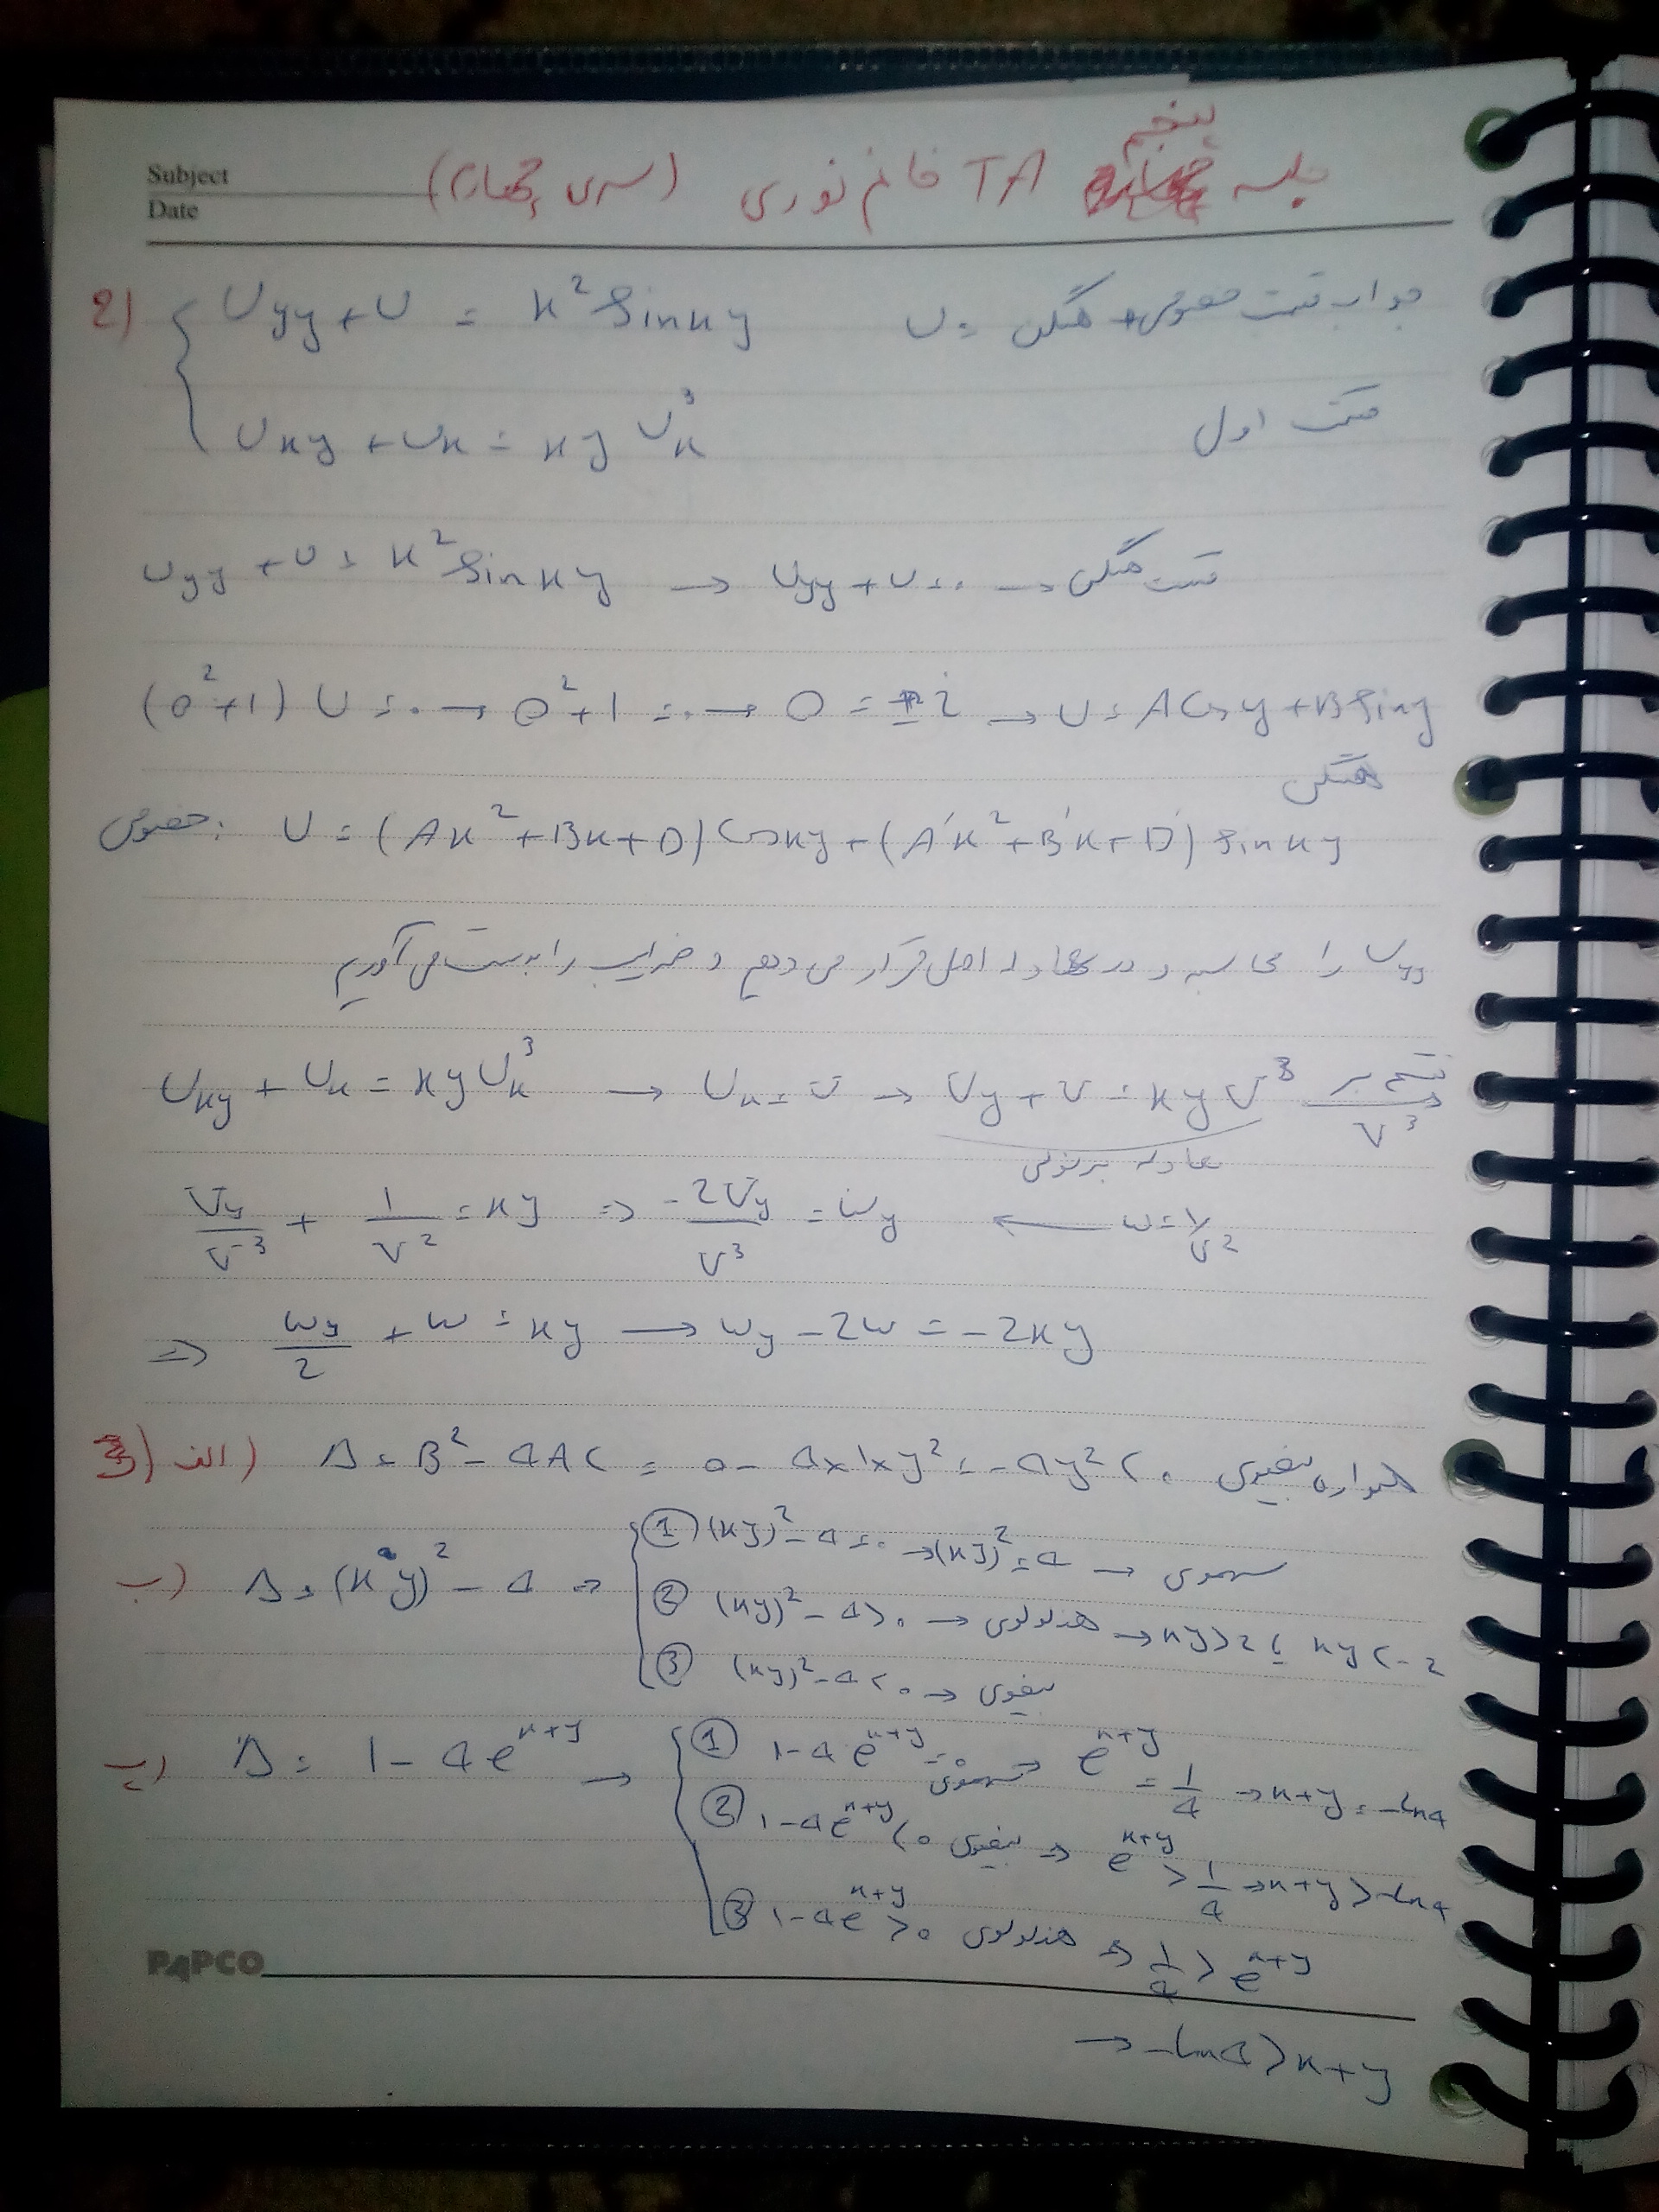 Subject
Date
جلسه پنجم TA خانم نوری (سری چهارم)
2) { Uyy + U = x² Sin xy    U = همگن + جواب قسمت خصوصی
Uxy + Ux = xy Ux³    قسمت اول
Uyy + U = x² Sin xy → Uyy + U = 0 → قسمت همگن
(D² + 1) U = 0 → D² + 1 = 0 → D = ± i → U = A Cos y + B Sin y
همگن
خصوصی: U = (Ax² + Bx + D) Cos xy + (A'x² + B'x + D') Sin xy
Uyy را محاسبه و در معادله اصلی قرار می دهیم و ضرایب را بدست می آوریم
Uxy + Ux = xy Ux³ → Ux = V → Vy + V = xy V³ تقسیم بر V³ →
معادله برنولی
Vy/V³ + 1/V² = xy ⇒ -2Vy/V³ = Wy ← W = 1/V²
⇒ Wy/2 + W = xy → Wy - 2W = -2xy
3) الف) Δ = B² - 4AC = 0 - 4×1×y² = -4y² < 0 همواره بیضوی
ب) Δ = (xy)² - 4 ⇒ { ① (xy)² - 4 = 0 → (xy)² = 4 → سهموی
② (xy)² - 4 > 0 → هذلولوی → xy > 2 یا xy < -2
③ (xy)² - 4 < 0 → بیضوی
پ) Δ = 1 - 4e^{x+y} → { ① 1 - 4e^{x+y} = 0 سهموی → e^{x+y} = 1/4 → x+y = -Ln4
② 1 - 4e^{x+y} < 0 بیضوی ⇒ e^{x+y} > 1/4 → x+y > -Ln4
③ 1 - 4e^{x+y} > 0 هذلولوی ⇒ 1/4 > e^{x+y}
PAPCO
→ -Ln4 > x+y